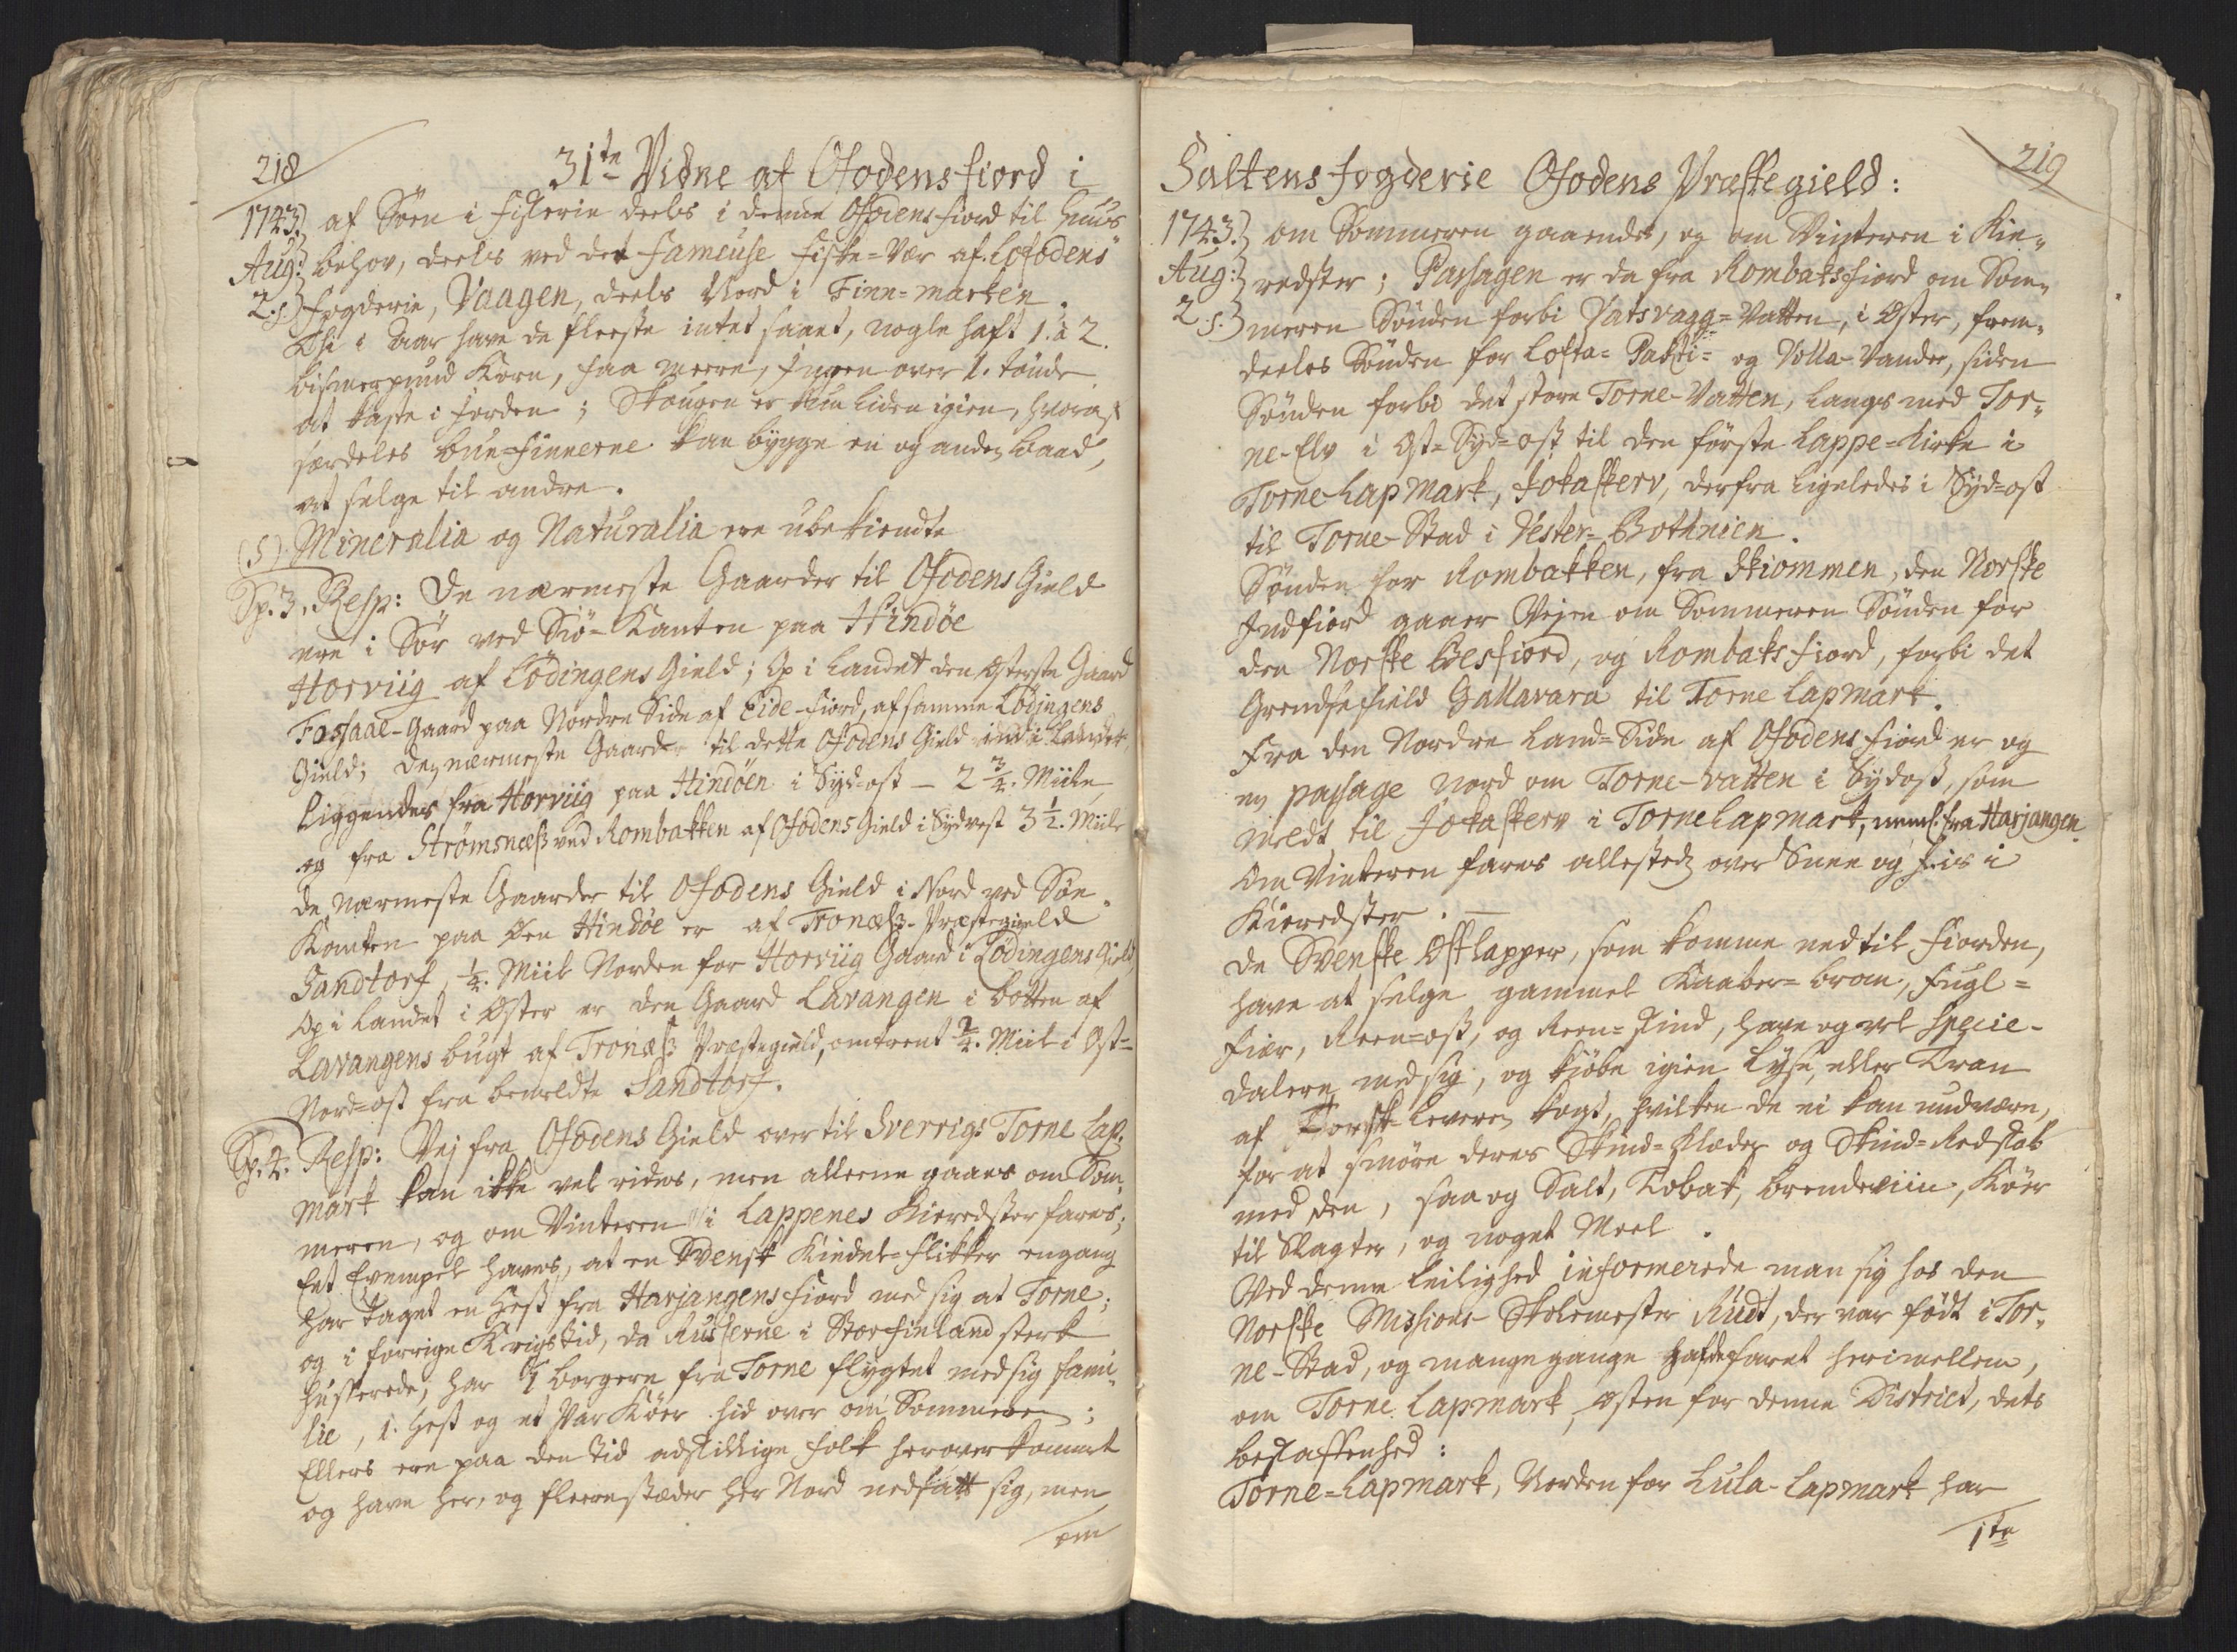 218
31te Vidne af Ofodens fiord i
1743. af Söen i fiskerie deels i denne Ofodens fiord til Huus
Aug: behov, deels ved det fameuse fiske=Vær af Lofodens
2. s. fogderie, Vaagen, deels Nord i Finn=marken.
Thi i Aar have de fleeste intet saaet, nogle haft 1. à 2.
bismerpund Korn, faa meere, Ingen over 1. tönde
at kaste i Jorden; Skougen er kun liden igien, hvoraf
særdeles bue=finnerne kan bygge en og anden baad,
at selge til andre.
(5). Mineralia og Naturalia ere ubekiendte
Sp. 3. Resp: De nærmeste Gaarder til Ofodens Gield
ere i Sör ved Siö=Kanten paa Hindöe
Horviig af Lödingens Gield; Op i Landet den Østerste Gaard
Fossaae-Gaard paa Nordre Side af Eide-fiord, af samme Lödingens
Gield; De nærmeste Gaarder til dette Ofodens Gield ind i Landet
liggendes fra Horviig paa Hindöen i Syd=ost – 2 3/4. Miile
og fra Strömsnæss ved Rombakken af Ofodens Gield i Sydvest 3 1/2. Miile
De nærmeste Gaarder til Ofodens Gield i Nord ved Söe
Kanten paa Öen Hindöe er af Tronæss-Præstegield
Sandtorf, 1/4. Miil Norden for Horviig Gaard i Lödingens Gield,
Op i Landet i Öster er den Gaard Lavangen i botten af
Lavangens bugt af Tronæss Præstegield, omtrent Miil i Ost=
Nord=ost fra bemeldte Sandtorf.
Sp. 4. Resp: Vej fra Ofodens Gield over til Sverrigs Torne Lap-
mark kan ikke vel rides, men alleene gaaes om Som-
meren, og om Vinteren i Lappenes Kieredster fares;
Eet Exempel haves, at en Svensk Kiedel=flikker engang
har taget en Hest fra Harjangens fiord med sig at Torne;
og i forrige Krigstid, da Russerne i Storfinland sterk
husserede, har borgere fra Torne flygtet med sig fami-
lie, 1. Hest og et Par Köer hid over om Sommeren;
Ellers ere paa den tid adskillige folk herover kommet
og have her, og fleere stæder her Nord nedsatt sig, men
om
219
Saltens fogderie Ofodens Præstegield:
1743. om Sommeren gaaendes, og om Vinteren i Kie-
Aug: redster; Passagen er da fra Rombaks fiord om Som-
2. s. meren Sönden forbi Vatsvagg=Vatten, i Öster, frem-
deeles Sönden for Lofta= Pakti= og Volla-Vander, siden
Sönden forbi det store Torne-Vatten, langs med Tor-
ne-Elv i Ost=Syd=ost til den förste Lappe=Kirke i
Torne Lap Mark, Jokaskerv, derfra ligeledes i Syd=ost
til Torne-Stad i Vester=Bothnien.
Sönden for Rombakken, fra Skiommen, den Norske
Indfiord gaaer Vejen om Sommeren Sönden for
den Norske Besfiord, og Rombaks fiord, forbi det
Grendse field Gallavara til Torne Lapmark.
Fra den Nordre Land=Side af Ofodens fiord er og
en passage Nord om Torne-Vatten i Sydost, som
meldt, til Jokaskerv i Torne Lapmark, nemf. fra Harjangen.
Om Vinteren fares allested over Snee og Iis i
Kieredster. —
De Svenske Ostlapper, som komme ned til fiorden,
have at selge gammel Kaaber=bron, fugl=
fier, Reen=ost, og Reen=skind, have og vel Specie-
dalere med sig, og kiöbe igien Lyse, eller Tran
af Torsk-Leveren kogt, hvilken de ei kan undvære,
for at smöre deres Skind=Klæder og Skind=Redskab
med den, saa og Salt, Tobak, brendeviin, Köer
til Slagter, og noget Meel.
Ved denne leilighed informerede man sig hos den
Norske Missions-Skolemester Rüdt, der var födt i Tor-
ne-Stad, og mange gange hafde faret herimellem,
om Torne Lapmark, östen for denne District, dets
beskaffenhed:
Torne=Lapmark, Norden for Lula-Lapmark har
1te